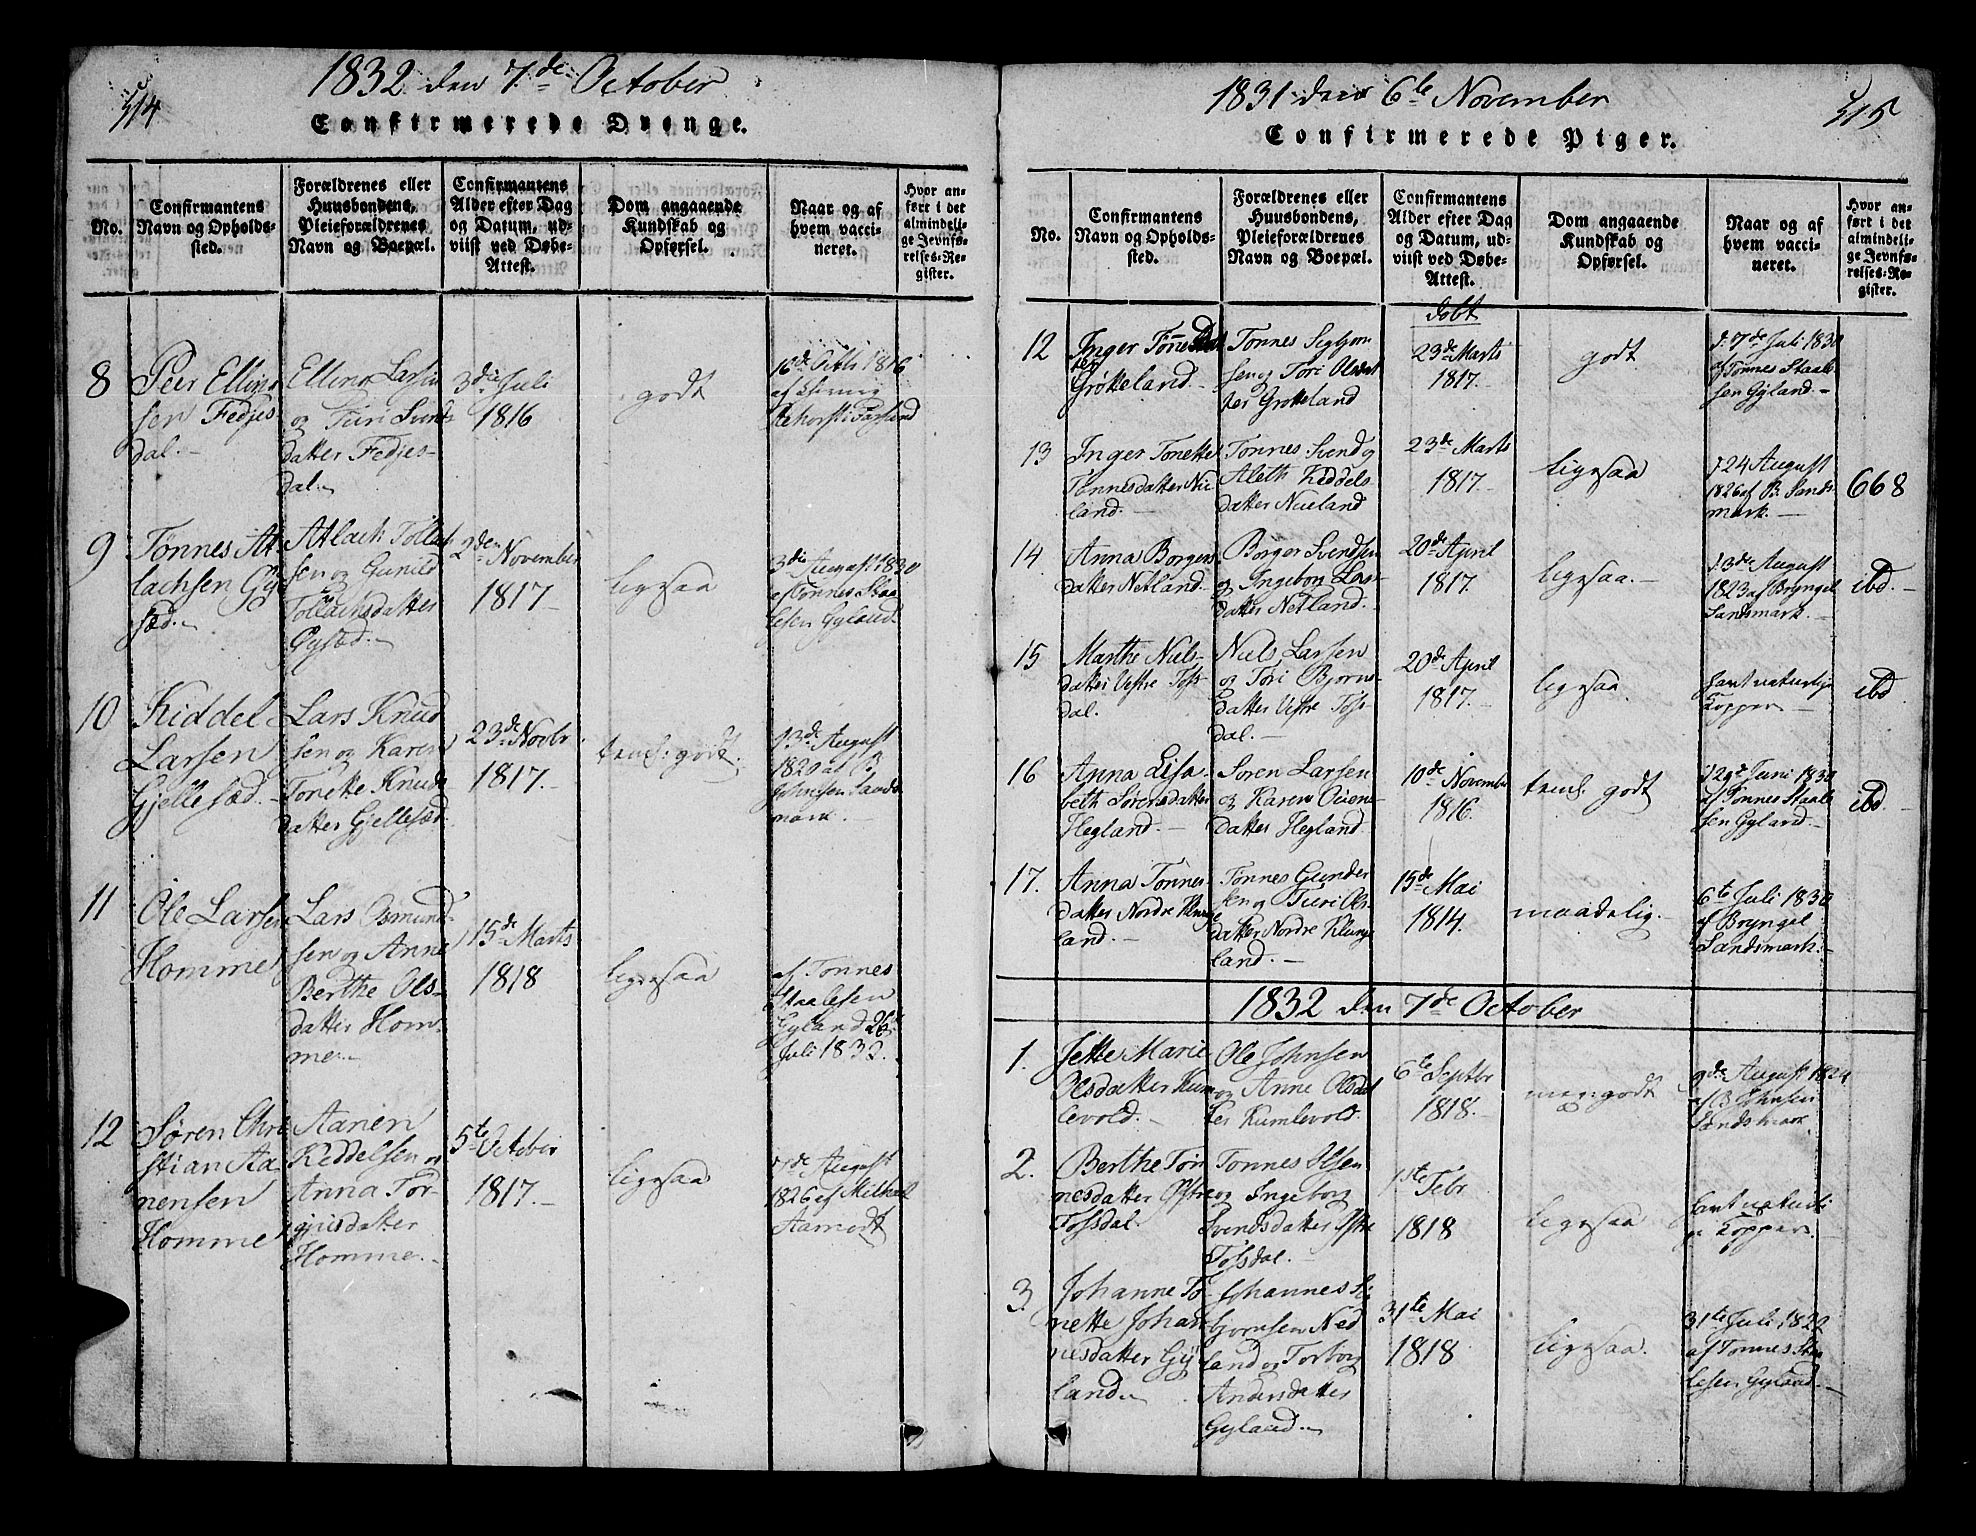 514
1832 den 7de October
Confirmerede Drenge.
No.
Confirmantens
Navn og Opholds-
sted.
Forældrenes eller
Huusbondens,
Pleieforældrenes
Navn og Boepæl.
Confirmantens
Alder efter Dag
og Datum, ud-
viist ved Døbe-
Attest.
Dom angaaende
Kundskab og
Opførsel.
Naar og af
hvem vacci-
neret.
Hvor an-
ført i det
almindeli-
ge Jevnfø-
relses-Re-
gister.
8
Peer Elling
sen Fedjes
dal.-
Elling Larsen
og Turi Svends
datter Fedjes-
dal.
3die Juli
1816
godt
1816
9
Tønnes At-
lachsen Gy
sæd.
Atlach Tollak
sen og Gunild
Tollachsdatter
Gysæd.
2den November
1817
ligesaa
3die August 1830
af Tønnes Staa
lesen Gyland
10
Kiddel
Larsen
Gjellesæd.
Lars Knud
sen og Karen
Tonette Knuds
datter Gjellesæd
23de Novbr
1817.
temel: godt.
13de August
1820 af B.
Johnsen Sands
mark.
11
Ole Larsen
Homme
Lars Osmund
sen og Anne
Berthe Ols-
datter Hom-
me.
15de Marts
1818
ligesaa
af Tønnes
Staalesen
Gyland 26
Juli 1832.
12
Søren Chri
stian Aa-
nensen
Homme
Aanen
Keddelsen og
Anna Tor-
gjusdatter
Homme.
5te October
1817.
ligesaa
August
1826 af
Aamodt
515
1831 den 6te November
Confirmerede Piger.
No.
Confirmantens
Navn og Opholds-
sted.
Forældrenes eller
Huusbondens,
Pleieforældrenes
Navn og Boepæl.
Confirmantens
Alder efter Dag
og Datum, ud-
viist ved Døbe-
Attest.
Dom angaaende
Kundskab og
Opførsel.
Naar og af
hvem vacci-
neret.
Hvor an-
ført i det
almindeli-
ge Jevnfø-
relses-Re-
gister.
døbt
12
Inger
ter
Grøkeland.
Tønnes Sigbjørn
sen og Tori Olsdat
ter Grøkeland
23de Marts
1817.
godt
d. 7de Juli 1830
af Tønnes Staale
sen Gyland
13
Inger Tonette
Tønnesdatter Nu
land.
Tønnes Svend og
Aleth Keddels
datter Nuland
23de Marts
1817.
ligesaa
d 24 August
1826 af B. Sands
mark.
668
14
Anna Borgers
datter Netland
Borger Svendsen
og Ingeborg Lars
datter Netland.
20de April
1817.
ligesaa.
13de August
1823 af Bryngel
Sandsmark.
ibd.
15
Marthe Niels-
datter Vestre Tøss
dal.
Niels Larsen
og Tori Bjorns-
datter Vestre Tøss
dal.
20de April
1817.
ligesaa.
havt naturlige
Kopper
ibd
16
Anna Lisa-
beth Sørensdatter
Hegland.
Søren Larsen
og Karen Oiens-
datter Hegland
10de November
1816.
temel. godt
d 29de Juni 1830
af Tønnes Staale
sen Gyland.
ibd
17.
Anna Tønnes-
datter Nordre Klunge
land.
Tønnes Gunder
sen og Turi Ols-
datter Nordre Klunge
land.
15de Mai
1814.
maadelig.
6te Juli 1830
af Bryngel
Sandsmark.
1832 den 7de October
1.
Jette Marie
Olsdatter Kum
levold.
Ole Johnsen
og Anne Olsdat
ter Kumlevold.
6te Septbr
1818.
meg: godt
9de August 1824
af B Johnsen
Sandsmark
2.
Berthe Tøn
nesdatter Østre
Tossdal.
Tønnes Olsen
og Ingeborg
Svendsdatter Østre
Tossdal.
1ste Febr
1818
ligesaa
havt naturli
ge Kopper.
3
Johanne To-
nette Johan
nesdatter Gy
land.
Johannes Si-
bjornsen Ned
land og Torborg
Andersdatter
Gyland.
31te Mai
1818
ligesaa.
31te Juli 1822
af Tønnes Staa
lesen Gyland.